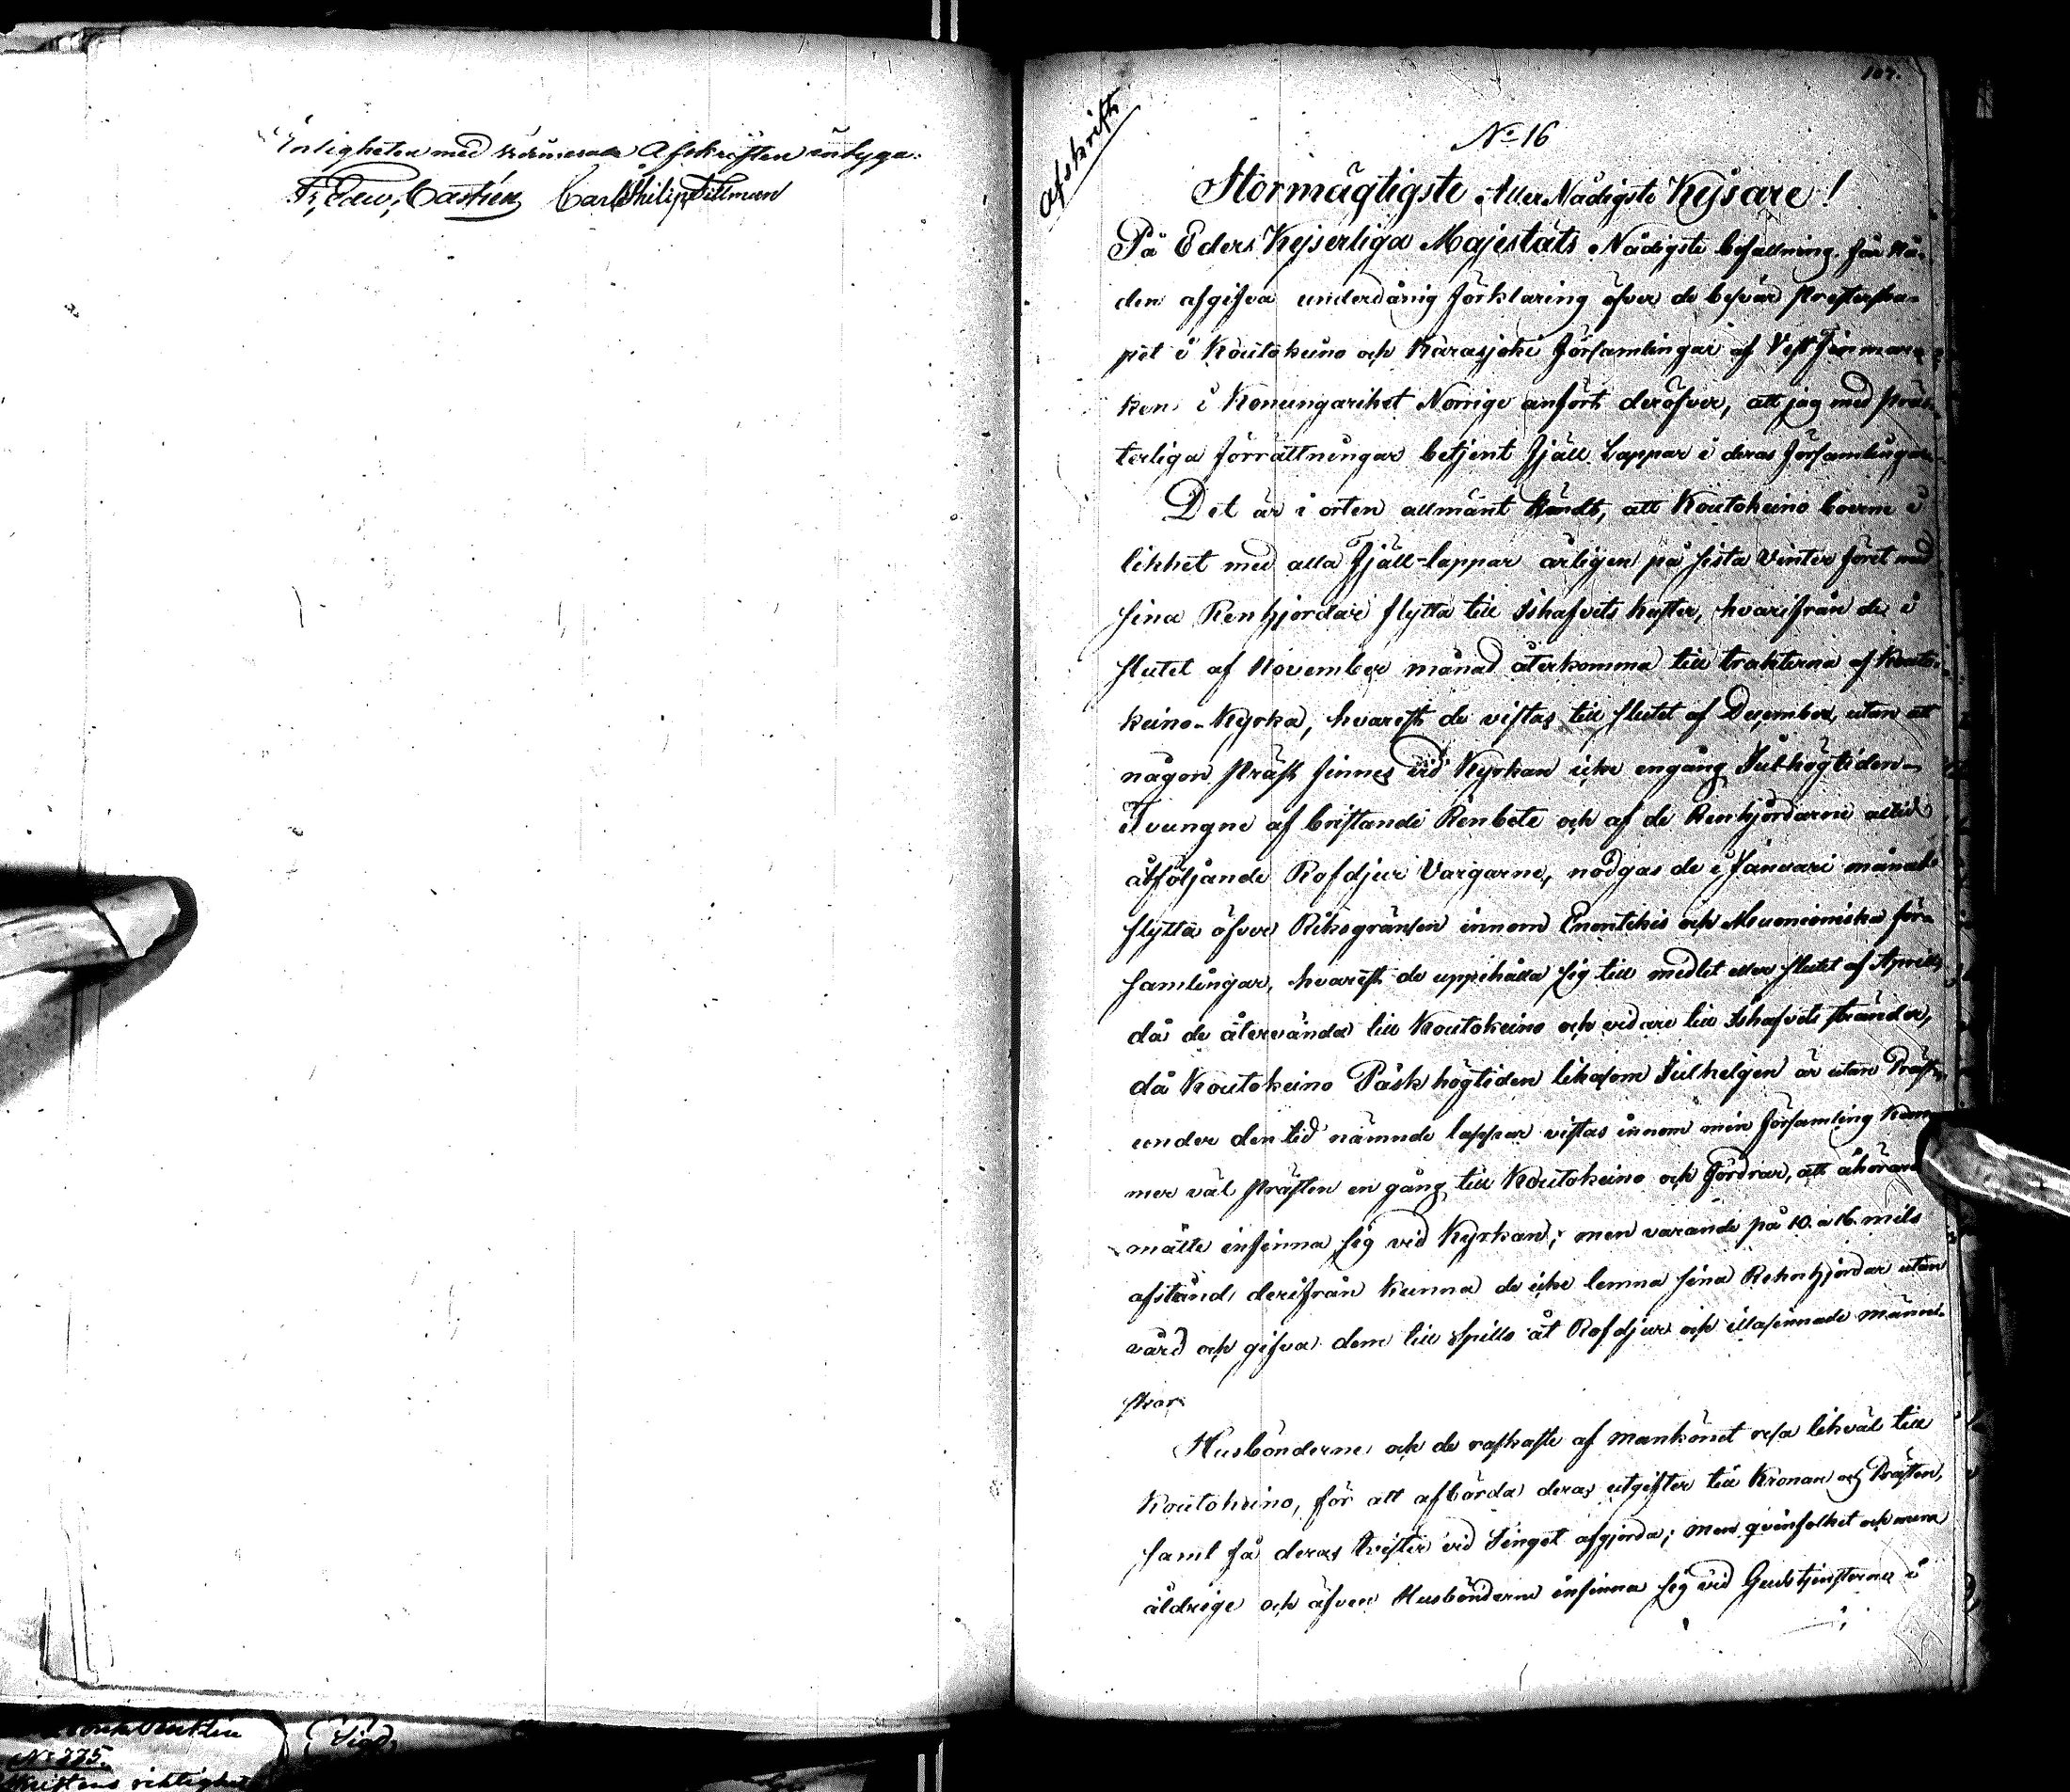 Enligheten med Afskriften intyga:
Fr, Edw, Castrén Carl Philip Tillman
107.
Afskrift
No 16
Stormägtigste Aller Nådigste Kejsare!
På Eders Kejserliga Majestäts Nådigste befallning får Nå-
den afgifva underdånig förklaring öfver de besvär Presterska-
pet i Koutokeino och Karasjoki Församlingar af Vest Finmar-
ken i Konungariket Norrige anfört deröfver, att jag med präs-
terliga förrättningar betjent Fjäll Lappar i deras Församlingar.
Det är i orten allmänt kändt, att Koutokeino boerne i
likhet med alla Fjäll-lappar årligen på sista Vinter föret med
sina Renhjordar flytta till Ishafvets kuster, hvarifrån de i
slutet af November månad återkomma till trakterna af Kouto-
keino-Kyrka, hvarest de vistas till slutet af December, utan att
någon präst finnes vid Kyrkan icke engång Jul-högtiden-
Tvungne af bristande Renbete och af de Renhjordarne alltid
åtföljande Rofdjur Vargarne, nödgas de i Januari månad
flytta öfver Riksgränsen innom Enontekis och Muonioniska för-
samlingar, hvarest de uppehålla sig till medlet eller slutet af April,
då de återvända till Koutokeino och vidare till Ishafvets stränder,
då Koutokeino Påsk högtiden likasom Julhelgen är utan Präst,
under den tid nämnde lappar vistas innom min Församling kom-
mer väl prästen en gång till Koutokeino och fordrar, att åhörarne
måtte infinna sig vid Kyrkan; men varande på 10 a 16. mils
afstånd derifrån kunna de icke lemna sina Rehnhjordar utan
vård och gifva dem till spillo åt Rofdjur och illasinnade männi-
skor.
Husbönderne och de raskaste af mankönet resa likväl till
Koutokeino, för att afbörda deras utgifter till Kronan och Prästen,
samt få deras tvister vid Tinget afgjorda; men qvinfolket och unga
äldrige och äfven Husbönderne infinna sig vid Gudstjensterne i
No 225.
(Sigd)
riktighet